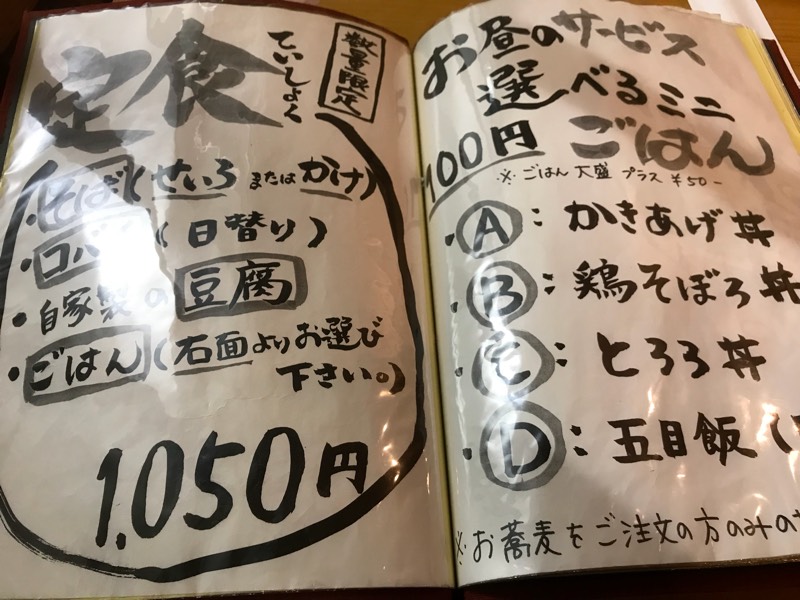 定食
ていしょく
数量限定
・そば(せいろ または かけ)
・(日替り)
・自家製の豆腐
・ごはん(右面よりお選び
下さい。)
1,050円
お昼のサービス
選べるミニ
ごはん
100円
※ごはん大盛プラス¥50-
・Ⓐ:かきあげ丼
・Ⓑ:鶏そぼろ丼
・Ⓒ:とろろ丼
・Ⓓ:五目飯(
※お蕎麦をご注文の方のみの